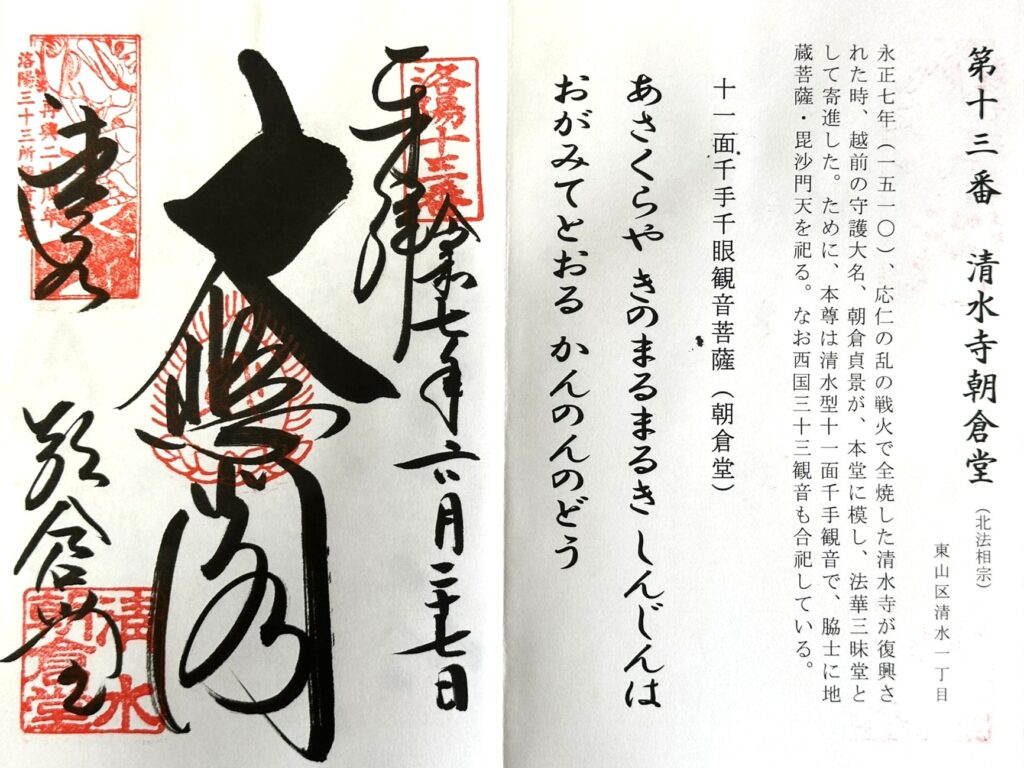 第十三番　清水寺朝倉堂（北法相宗）
東山区清水一丁目
永正七年（一五一〇）、応仁の乱の戦火で全焼した清水寺が復興さ
れた時、越前の守護大名、朝倉貞景が、本堂に模し、法華三昧堂と
して寄進した。ために、本尊は清水型十一面千手観音で、脇士に地
蔵菩薩・毘沙門天を祀る。なお西国三十三観音も合祀している。
十一面千手千眼観音菩薩（朝倉堂）
あさくらや きのまるまるき しんじんは
おがみてとおる かんのんのどう
洛陽十三番
奉拝
令和七年六月二十七日
大悲閣
再興二十周年
洛陽三十三所
清水寺
朝倉堂
清水
朝倉堂